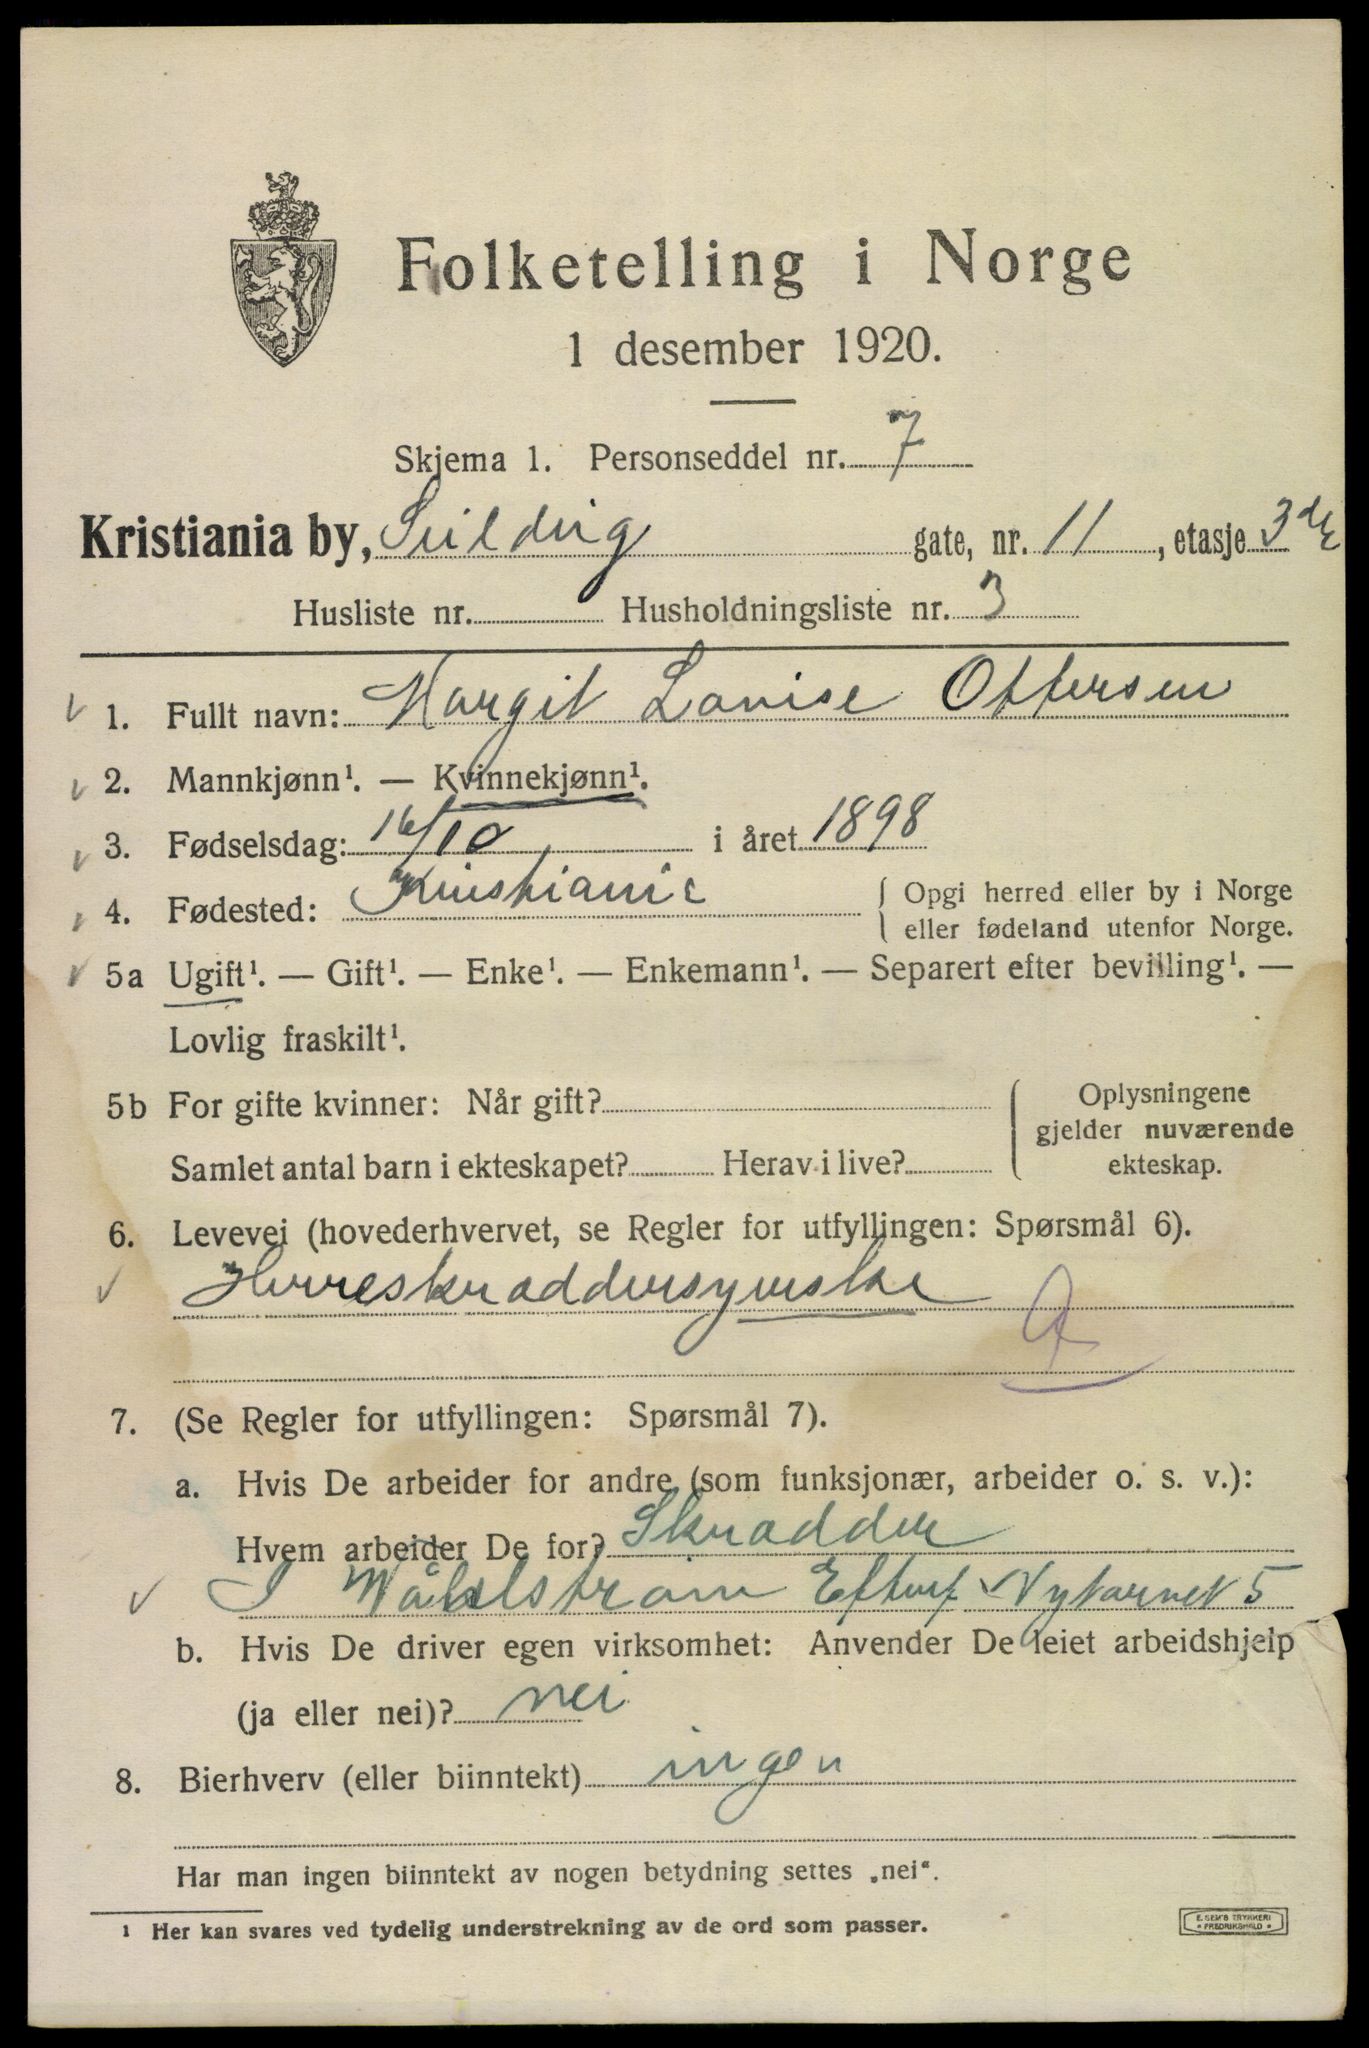 Folketelling i Norge
1 desember 1920.
Skjema 1. Personseddel nr. 7
Kristiania by, gate, nr. 11, etasje 3de
Husliste nr. Husholdningsliste nr. 3
1. Fullt navn: Margit Lovise Ottersen
2. Mannkjønn¹. — Kvinnekjønn¹.
3. Fødselsdag: 16/10 i året 1898
4. Fødested: Kristiania { Opgi herred eller by i Norge
eller fødeland utenfor Norge.
5a Ugift¹. — Gift¹. — Enke¹. — Enkemann¹. — Separert efter bevilling¹. —
Lovlig fraskilt¹.
5b For gifte kvinner: Når gift? Oplysningene
gjelder nuværende
Samlet antal barn i ekteskapet? Herav i live? ekteskap.
6. Levevei (hovederhvervet, se Regler for utfyllingen: Spørsmål 6).
Herreskraddersyerske
7. (Se Regler for utfyllingen: Spørsmål 7).
a. Hvis De arbeider for andre (som funksjonær, arbeider o. s. v.):
Hvem arbeider De for? Skradder
Efterf Nytorvet 5
b. Hvis De driver egen virksomhet: Anvender De leiet arbeidshjelp
(ja eller nei)? nei
8. Bierhverv (eller biinntekt) ingen
Har man ingen biinntekt av nogen betydning settes „nei“.
¹ Her kan svares ved tydelig understrekning av de ord som passer.
E. SEM'S TRYKKERI
FREDRIKSHALD